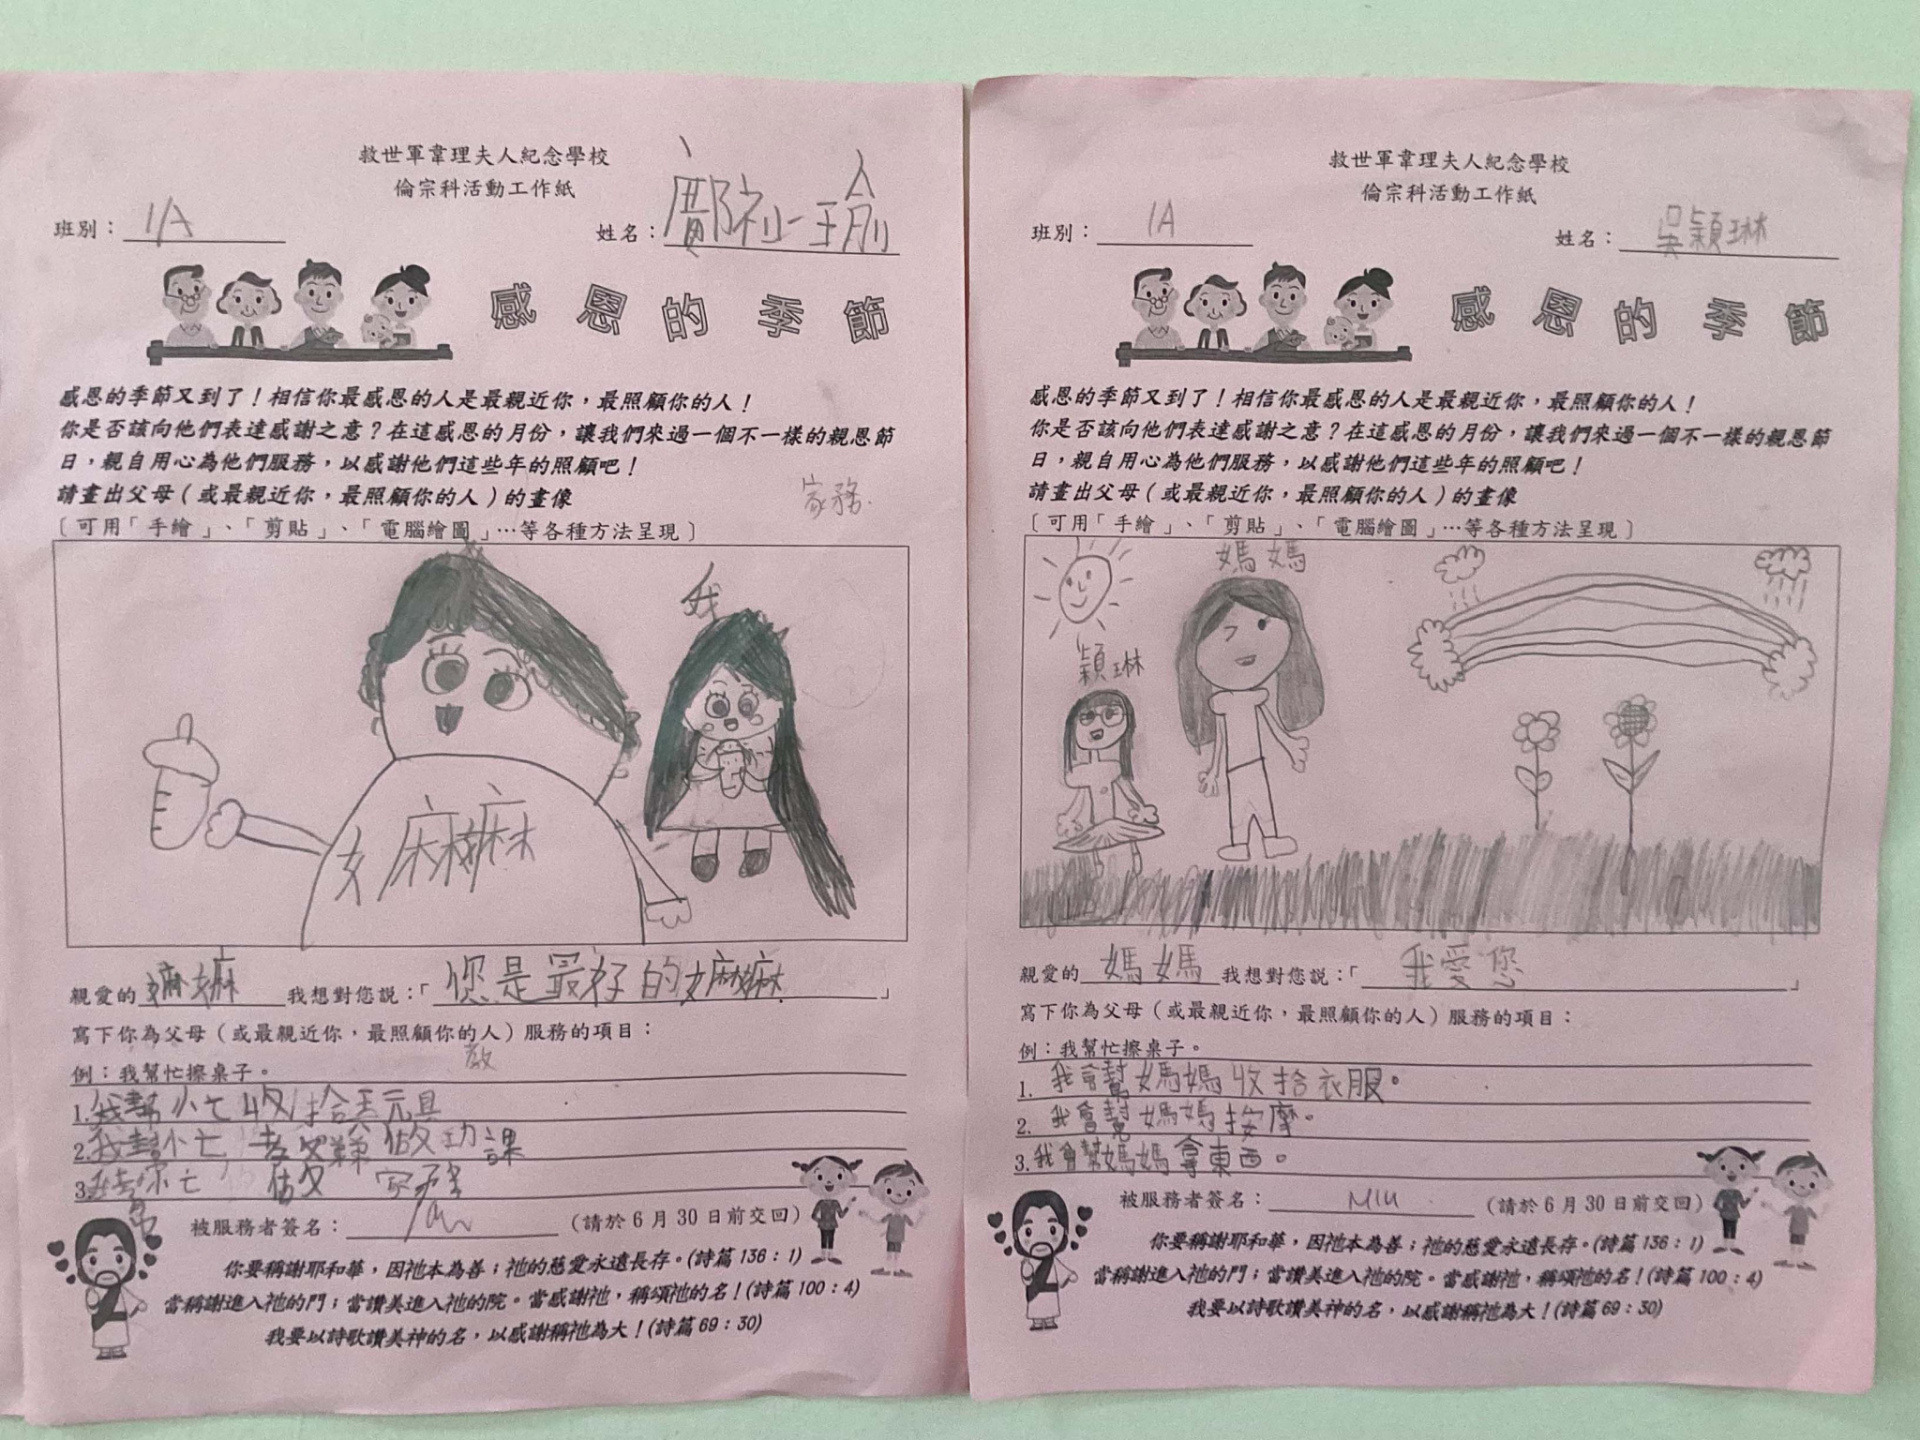 救世軍韋理夫人紀念學校
倫宗科活動工作紙
班別：1A 姓名：
感恩的季節
感恩的季節又到了！相信你最感恩的人是最親近你，最照顧你的人！
你是否該向他們表達感謝之意？在這感恩的月份，讓我們來過一個不一樣的親恩節
日，親自用心為他們服務，以感謝他們這些年的照顧吧！
家務.
請畫出父母（或最親近你，最照顧你的人）的畫像
〔可用「手繪」、「剪貼」、「電腦繪圖」…等各種方法呈現〕
我
嫲嫲
親愛的嫲嫲 我想對您説：「您是最好的嫲嫲.」
寫下你為父母（或最親近你，最照顧你的人）服務的項目：
教
例：我幫忙擦桌子。
1.我幫忙收拾玩具
2.我幫忙 做功課
3. 幫忙 做家務
被服務者簽名： （請於6月30日前交回）
你要稱謝耶和華，因祂本為善；祂的慈愛永遠長存。(詩篇136：1)
當稱謝進入祂的門；當讚美進入祂的院。當感謝祂，稱頌祂的名！(詩篇100：4)
我要以詩歌讚美神的名，以感謝稱祂為大！(詩篇69：30)
救世軍韋理夫人紀念學校
倫宗科活動工作紙
班別：1A 姓名：吳穎琳
感恩的季節
感恩的季節又到了！相信你最感恩的人是最親近你，最照顧你的人！
你是否該向他們表達感謝之意？在這感恩的月份，讓我們來過一個不一樣的親恩節
日，親自用心為他們服務，以感謝他們這些年的照顧吧！
請畫出父母（或最親近你，最照顧你的人）的畫像
〔可用「手繪」、「剪貼」、「電腦繪圖」…等各種方法呈現〕
媽媽
穎琳
親愛的媽媽 我想對您説：「我愛您」
寫下你為父母（或最親近你，最照顧你的人）服務的項目：
例：我幫忙擦桌子。
1. 我會幫媽媽收拾衣服。
2. 我會幫媽媽按摩。
3.我會幫媽媽拿東西。
被服務者簽名： （請於6月30日前交回）
你要稱謝耶和華，因祂本為善；祂的慈愛永遠長存。(詩篇136：1)
當稱謝進入祂的門；當讚美進入祂的院。當感謝祂，稱頌祂的名！(詩篇100：4)
我要以詩歌讚美神的名，以感謝稱祂為大！(詩篇69：30)